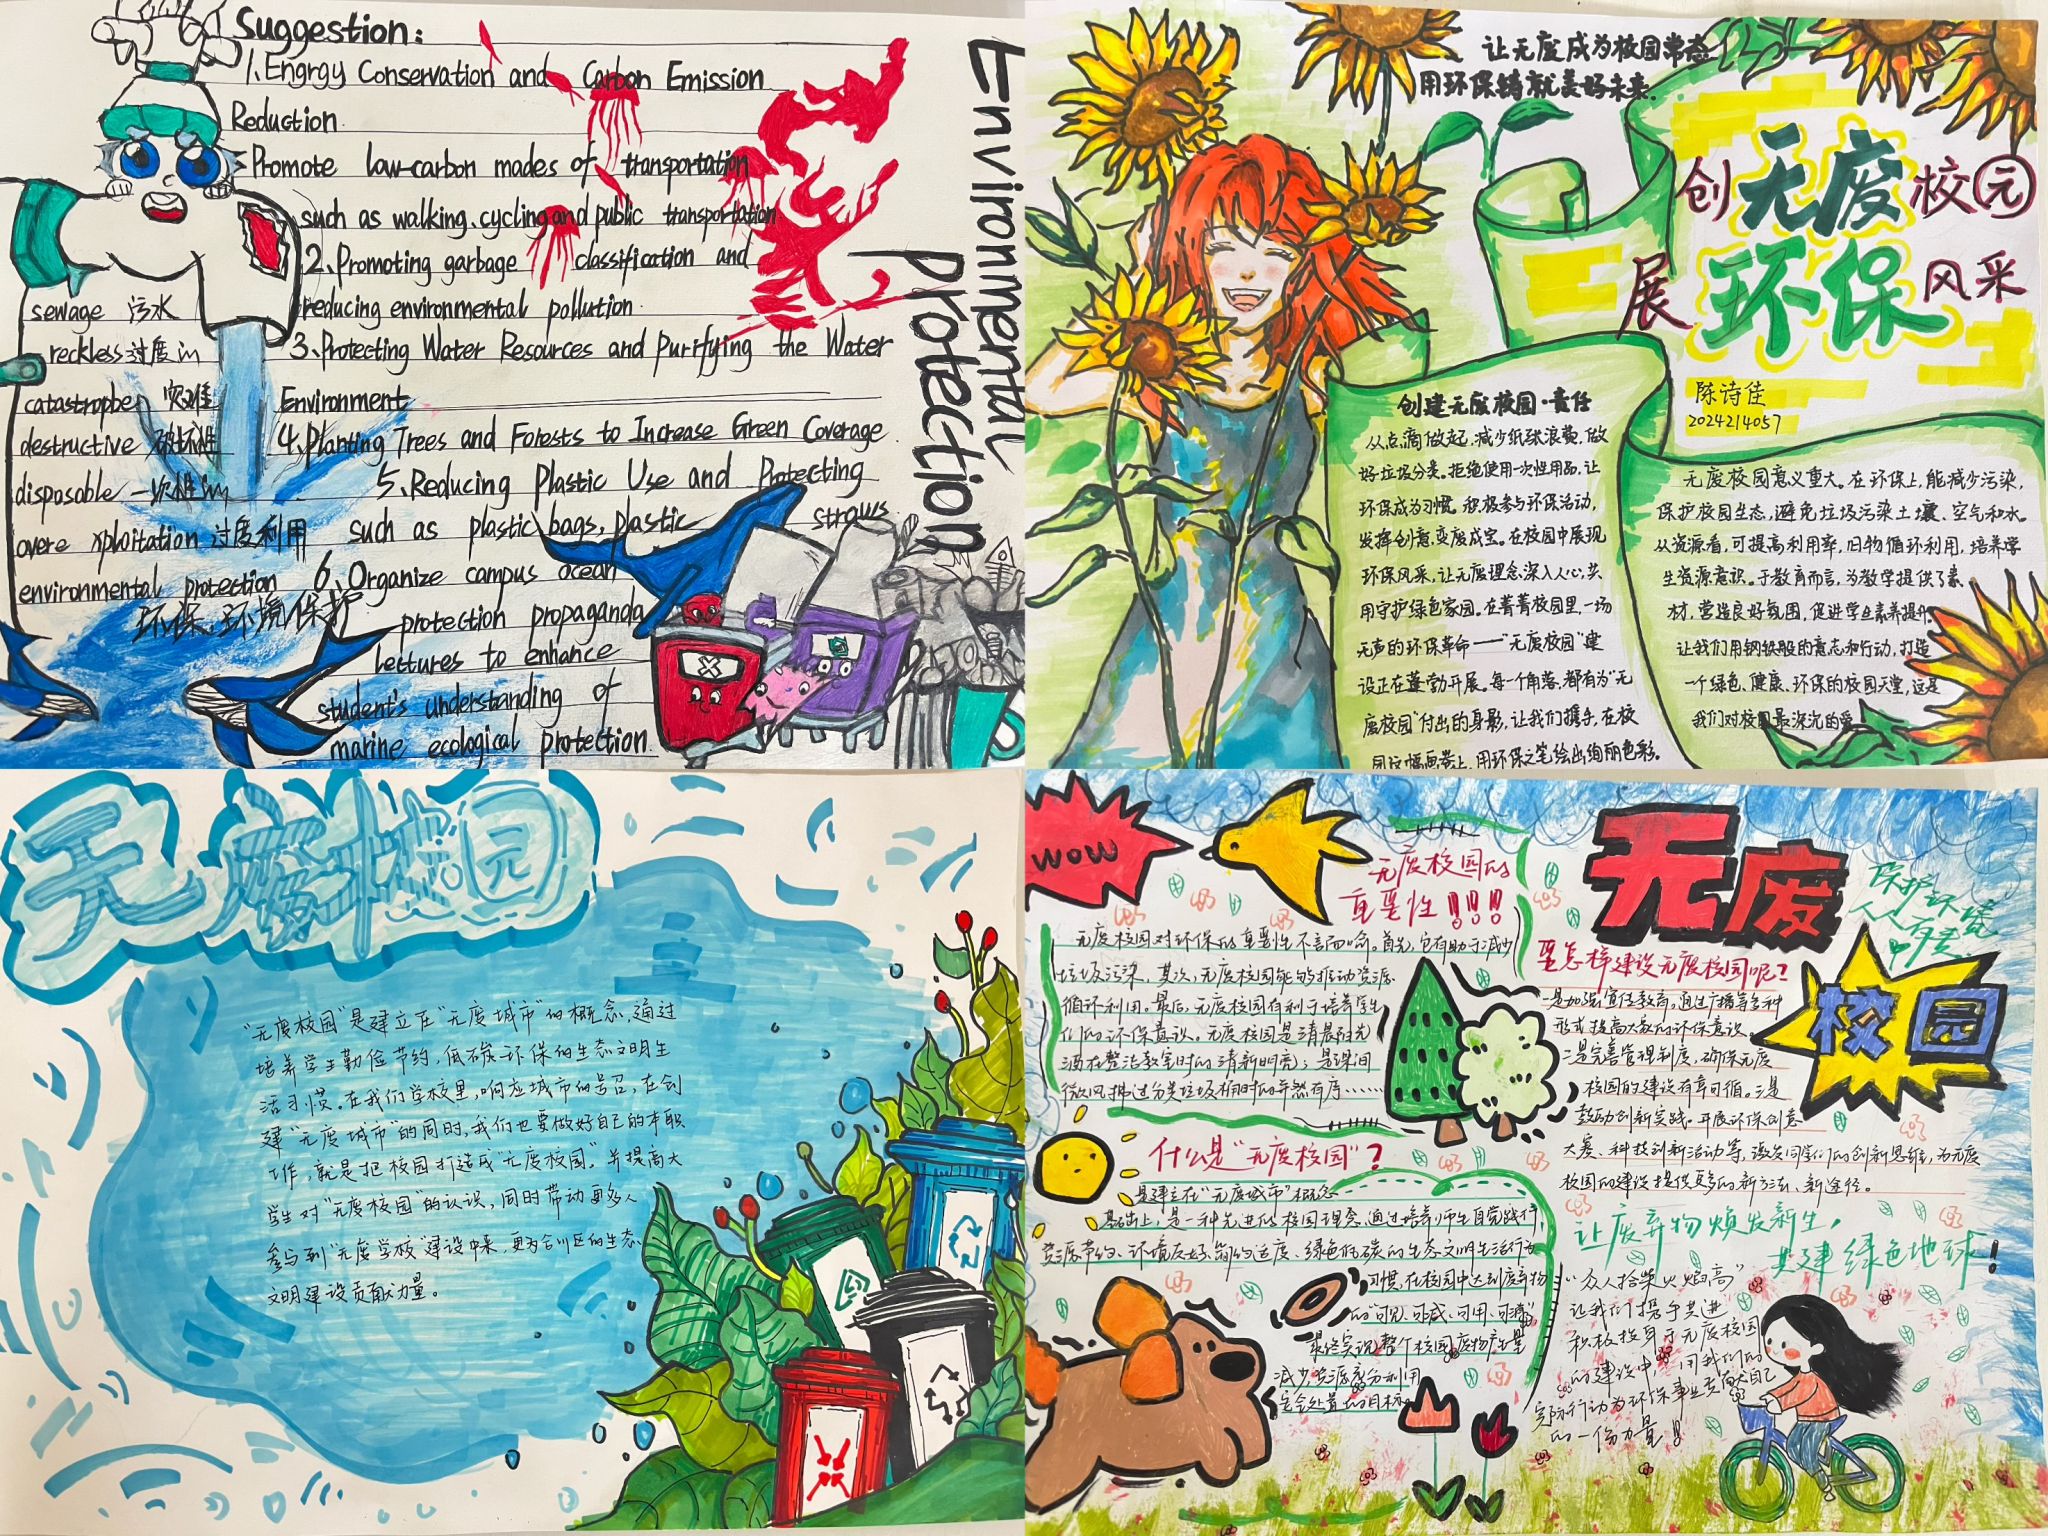 Suggestion:
1、Engrgy Conservation and Carbon Emission
Reduction
Promote low-carbon mades of transportation
such as walking、cycling and public transportation
2、Promoting garbage classification and
reducing environmental pollution
3、Protecting Water Resources and Purifying the Water
Environment
4、Planting Trees and Forests to Increase Green Coverage
5、Reducing Plastic Use and Protecting
such as plastic bags, plastic straws
6、Organize campus ocean
protection propaganda
lecttures to enhance
student's understanding of
marine ecological protection
Environmental
protection
sewage 污水
reckless 过度的
catastrophe 灾难
destructive 破坏性
disposable 一次性的
overe xploitation 过度利用
environmental protection
环保、环境保护
让无废成为校园常态
用环保铸就美好未来
创无废校园
展环保风采
陈诗佳
2024214057
创建无废校园·责任
从点滴做起,减少纸张浪费,做
好垃圾分类。拒绝使用一次性用品,让
环保成为习惯。积极参与环保活动,
发挥创意,变废成宝。在校园中展现
环保风采,让无废理念深入人心,共
用守护绿色家园。在菁菁校园里,一场
无声的环保革命——"无废校园"建
设正在蓬勃开展。每一个角落,都有为"无
废校园"付出的身影,让我们携手,在校
园这幅画卷上,用环保之笔绘出绚丽色彩。
无废校园意义重大。在环保上,能减少污染,
保护校园生态,避免垃圾污染土壤、空气和水。
从资源看,可提高利用率,旧物循环利用,培养学
生资源意识。于教育而言,为教学提供了素
材,营造良好氛围,促进学生素养提升。
让我们用钢铁般的意志和行动,打造
一个绿色、健康、环保的校园天堂,这是
我们对校园最深沉的爱
无废校园
"无废校园"是建立在"无废城市"的概念,通过
培养学生勤俭节约,低碳环保的生态文明生
活习惯。在我们学校里,响应城市的号召,在创
建"无废城市"的同时,我们也要做好自己的本职
工作,就是把校园打造成"无废校园"。并提高大
学生对"无废校园"的认识,同时带动更多人
参与到"无废学校"建设中来,更为合川区的生态
文明建设贡献力量。
WOW
无废校园的
重要性!!!
无废校园对环保的重要性不言而喻。首先,它有助于减少
垃圾污染,其次,无废校园能够推动资源
循环利用。最后,无废校园有利于培养学生
们的环保意识。无废校园是清晨阳光
洒在整洁教室时的清新明亮;是课间
微风拂过分类垃圾桶时的井然有序……
什么是"无废校园"?
是建立在"无废城市"概念
基础上,是一种先进的校园理念,通过培养师生自觉践行
资源节约、环境友好、简约适度、绿色低碳的生态文明生活行为
习惯,在校园中达到废弃物
的"可见、可减、可用、可消"
最终实现整个校园废物产生量
减少、资源充分利用
安全处置的目标。
无废
校园
保护环境
人人有责
要怎样建设无废校园呢?
一是加强宣传教育。通过广播等多种
形式提高大家的环保意识。
二是完善管理制度,确保无废
校园的建设有章可循。三是
鼓励创新实践。开展环保创意
大赛、科技创新活动等,激发同学们的创新思维,为无废
校园的建设提供更多的新方法、新途径。
让废弃物焕发新生,
共建绿色地球!
"众人拾柴火焰高"
让我们携手共进
积极投身于无废校园
的建设中,用我们的
实际行动为环保事业贡献自己
的一份力量!!